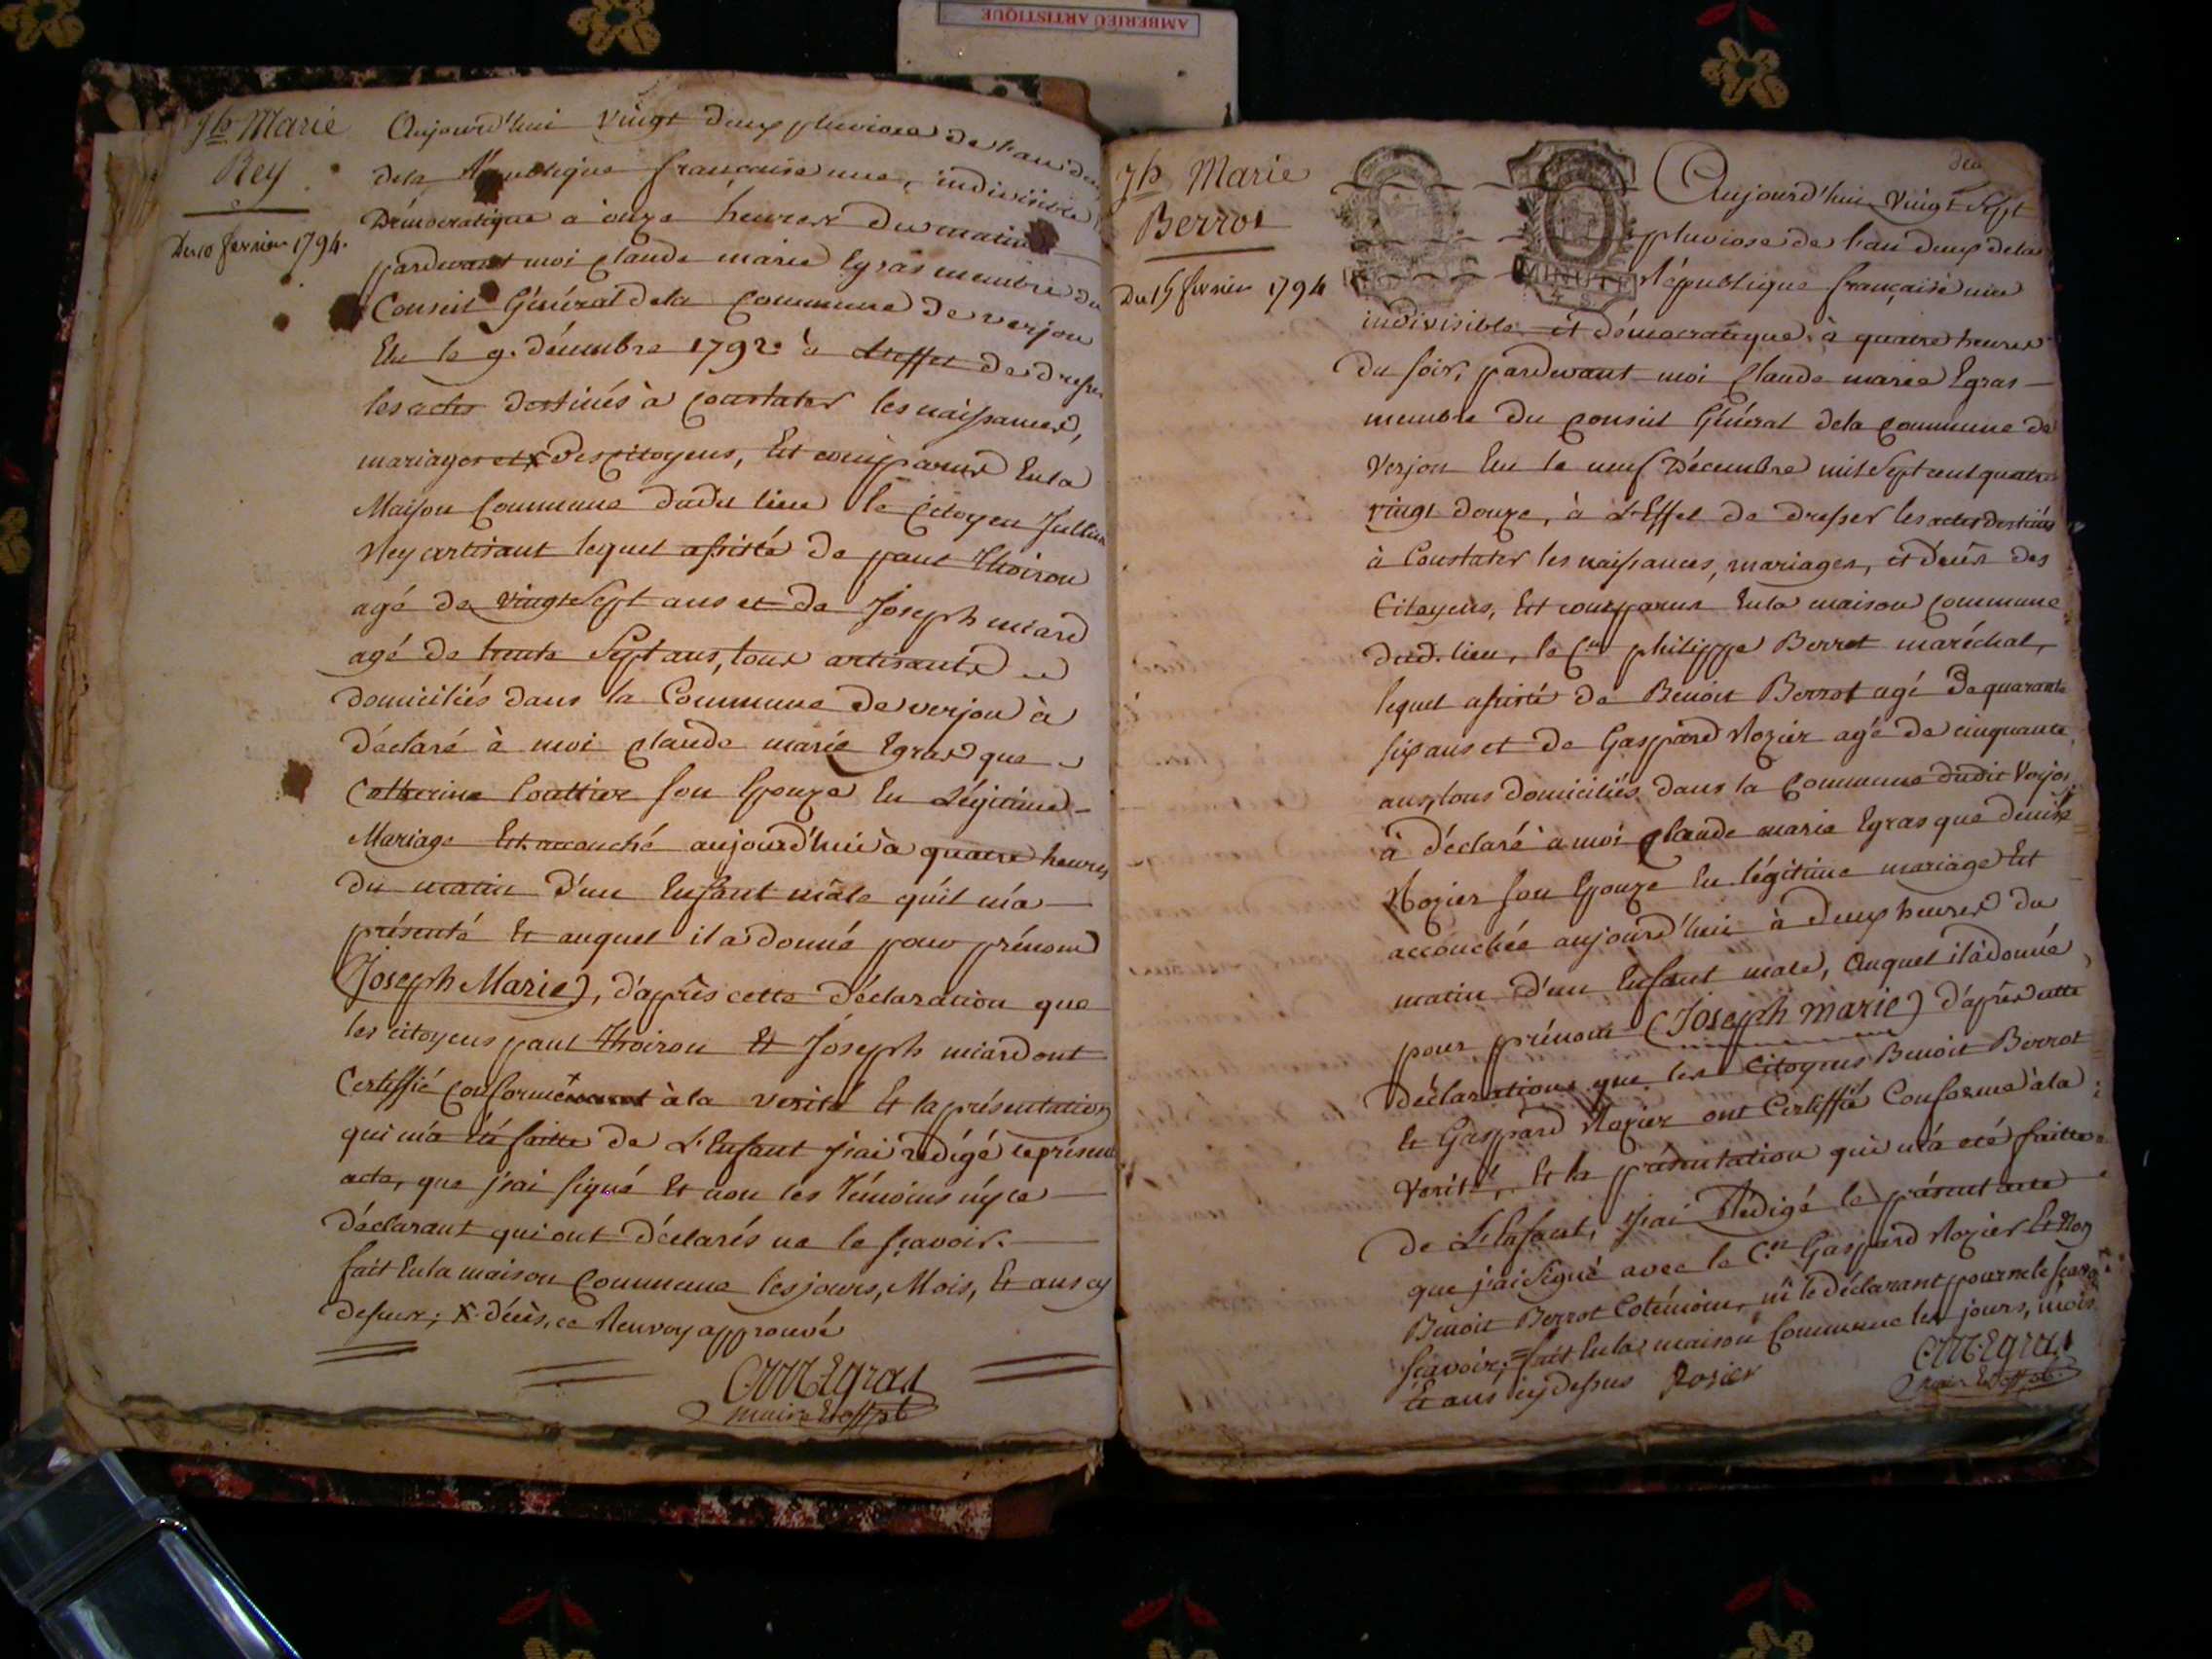 AMBERIEU ARTISTIQUE
Jh Marie
Rey
Du 10 fevrier 1794.
Aujourd'hui vingt deux pluviose de l'an deux
dela République française une, indivisible
Démocratique a onze heures du matin
pardevant moi Claude marie Egras membre du
Conseil Général dela Commune de verjon
Elu le 9. décembre 1792. à L'effet de dresser
les actes destinés à constater les naissances,
mariages et x des citoyens, Est comparu Enla
Maison Commune dudit lieu le Citoyen Jullien
Rey artisant lequel assisté de paul Thoiron
agé de vingt Sept ans et de Joseph miard
agé de trente Sept ans, tous artisants
domiciliés dans la Commune de verjon à
déclaré à moi Claude marie Egras que
Catherine Couttier son Epouze En Légitime
Mariage Est accouché aujourd'hui à quatre heures
du matin d'un Enfant mâle qu'il m'a
présenté Et auquel il a donné pour prénom
(Joseph Marie), d'après cette déclaration que
les citoyens paul Thoiron Et Joseph miard ont
Certiffié conforme à la verité Et la présentation
qui m'a été faitte de L'Enfant j'ai rédigé le présent
acte, que j'ai signé Et non les Témoins ny le
déclarant qui ont déclarés ne le sçavoir.
fait Enla maison Commune les jours, Mois, Et ans cy
dessus; x décès, ce Renvoy approuvé
CM Egras
maire Et off. pb.
Jh Marie
Berrot
Du 15 fevrier 1794
MINUTE
Aujourd'hui Vingt Sept
pluviose de l'an deux dela
République française une
indivisible et démocratique, à quatre heures
du soir, pardevant moi Claude marie Egras
membre du Conseil Général dela Commune de
Verjon Elu le neuf Décembre mil Sept cent quatre
vingt douze, à L'Effet de dresser les actes destinés
à Constater les naissances, mariages, et décès des
Citoyens, Est comparu Enla maison Commune
dud. lieu, le Cen philippe Berrot maréchal,
lequel assisté de Benoit Berrot agé de quarante
six ans et de Gaspard Rozier agé de cinquante
ans, tous domiciliés dans la Commune dudit Verjon
à déclaré à moi Claude marie Egras que denise
Rozier son Epouze En légitime mariage Est
accouchée aujourd'hui à deux heures du
matin d'un Enfant male, Auquel il à donné
pour prénom (Joseph marie) d'après cette
déclaration que les Citoyens Benoit Berrot
Et Gaspard Rozier ont Certiffié Conforme à la
Verité, Et la présentation qui m'a eté faitte
de L'Enfant, j'ai Rédigé le présent acte
que j'ai signé avec le Cen Gaspard Rozier Et Non
Benoit Berrot Cotémoin, ni le déclarant pour ne le
sçavoir; fait Enla maison Commune les jours, mois
Et ans cy dessus Rozier
CM Egras
maire Et off. pb.